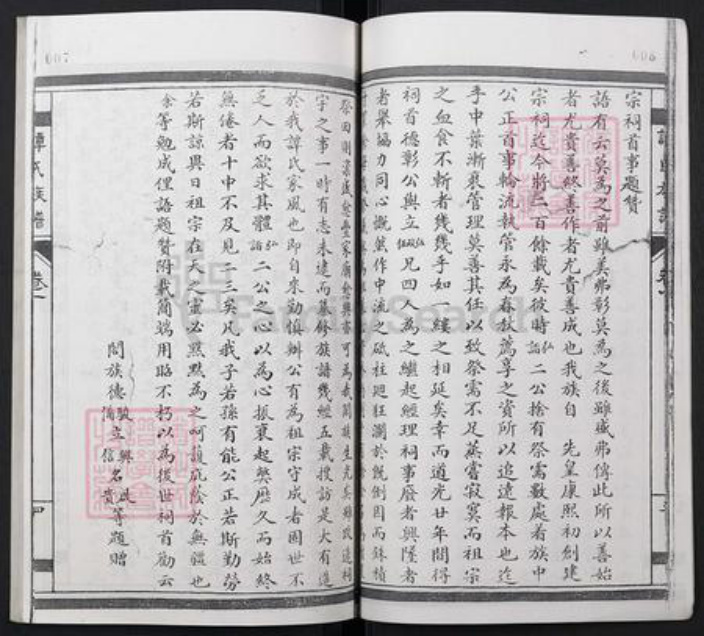 宗祠首事題贊
語有云莫為之前雖美弗彰莫為之後雖盛弗傳此所以善始
者尤貴善終善作者尤貴善成也我族自 先皇康熙初創建
宗祠迄今將二百餘載矣彼時弘語二公捨有祭需數處着族中
公正首事輪流執管永為春秋薦享之資所以追遠報本也迄
乎中葉漸衰管理莫善其任以致祭需不足蒸嘗寂寞而祖宗
之血食不斬者幾幾乎如一縷之相延矣幸而道光廿年間得
祠首德彰公與立 兄四人為之繼起經理祠事廢者興墜者
者舉協力同心慨然作中流之砥柱廻狂瀾於既倒因而銖積
祭田則
宇之事一時有志未逮而纂修族譜幾經五載搜訪是大有造
於我譚氏家風也即自來勤慎辦公有為祖宗守成者固世不
乏人而欲求其體弘語二公之心以為心振衰起獘歷久而始終
無倦者十中不及見一三矣凡我子若孫有能公正若斯勤勞
若斯諒異日祖宗在天之靈必默默為之呵護庇蔭於無疆也
余等勉成俚語題贊附載簡端用昭不朽以為後世祠首勸云
闔族德 立 名 等題贈
譚氏族譜
卷一
四
007
008
FamilySearch